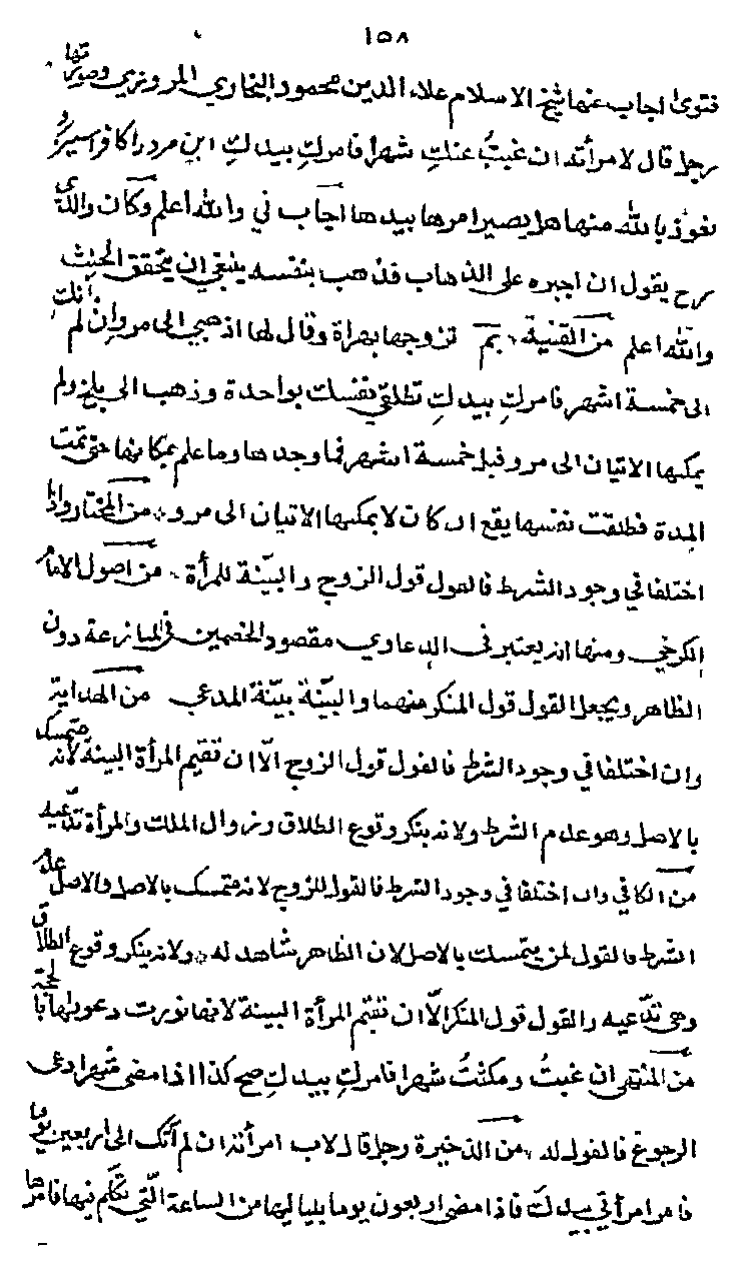 ١٥٨
فتوى اجاب عنها شيخ الاسلام علاء الدين محمود البخاري المروزي وصورتها
رجل قال لامرأته ان غبتُ عنكِ شهرا فامركِ بيدكِ اين مرد را كافر اسير
نعوذ بالله منها هل يصير امرها بيدها اجاب ني والله اعلم وكان والدي
رح يقول ان اجبره على الذهاب فذهب بنفسه ينبغي ان يتحقق الحنث
والله اعلم من القنية بم تزوجها بهراة وقال لها اذهبي الى مرو ان لم آتك
الى خمسة اشهر فامركِ بيدكِ تطلقي نفسك بواحدة وذهب الى بلخ ولم
يمكنها الاتيان الى مرو قبل خمسة اشهر فما وجدها وما علم بمكانها حتى تمت
المدة فطلقت نفسها يقع ان كان لا يمكنها الاتيان الى مرو من المختار واذا
اختلفا في وجود الشرط فالقول قول الزوج والبيّنة للمرأة من اصول الامام
الكرخي ومنها انه يعتبر في الدعاوي مقصود الخصمين في المنازعة دون
الظاهر ويجعل القول قول المنكر منهما والبيّنة بيّنة المدعي من الهداية
وان اختلفا في وجود الشرط فالقول قول الزوج الّا ان تقيم المرأة البينة لانه متمسك
بالاصل وهو عدم الشرط ولانه ينكر وقوع الطلاق وزوال الملك والمرأة تدّعيه
من الكافي وان اختلفا في وجود الشرط فالقول للزوج لانه متمسك بالاصل والاصل عدم
الشرط فالقول لمن يتمسك بالاصل لان الظاهر شاهد له ولانه ينكر وقوع الطلاق
وهي تدّعيه والقول قول المنكر الّا ان تقيم المرأة البينة لانها نورت دعويها بالحجة
من المنتقى ان غبتُ ومكثتُ شهرا فامركِ بيدكِ صح كذا اذا مضى شهر ادعى
الرجوع فالقول له من الذخيرة رجل قال لاب امرأته ان لم آتك الى اربعين يوما
فامر امرأتي بيدكَ فاذا مضى اربعون يوما بلياليها من الساعة الّتي تكلّم فيها فامرها